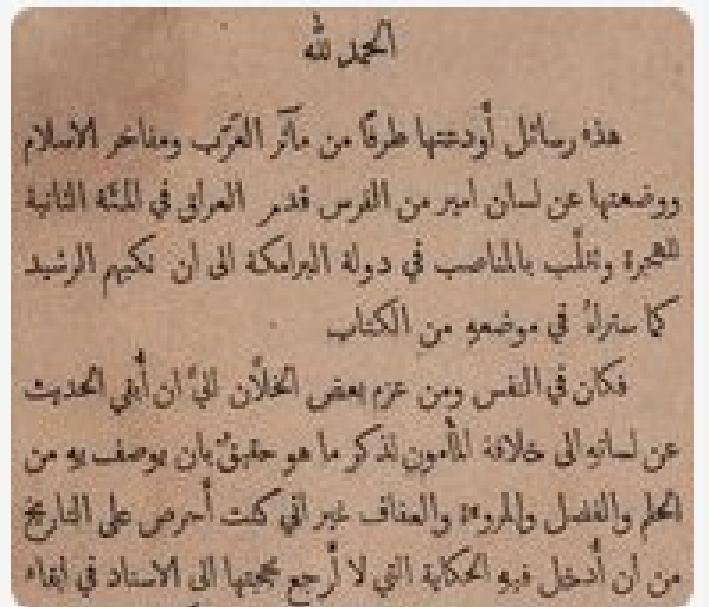 الحمد لله
هذه رسائل أودعتها طرفًا من مآثر العَرَب ومفاخر الاسلام
ووضعتها عن لسان امير من الفرس قدم العراق في المئة الثانية
للهجرة وتقلَّب بالمناصب في دولة البرامكة الى ان نكبهم الرشيد
كما ستراهُ في موضعهِ من الكتاب
فكان في النفس ومن عزم بعض الخلَّان اليَّ ان أُبقي الحديث
عن لسانهِ الى خلافة المأمون لذكر ما هو حقيقٌ بان يوصف بهِ من
الحلم والفضل والمروءة والعفاف غير اني كنت أحرص على التاريخ
من ان أُدخل فيهِ الحكاية التي لا أرجع بحجتها الى الاسناد في ايفاء